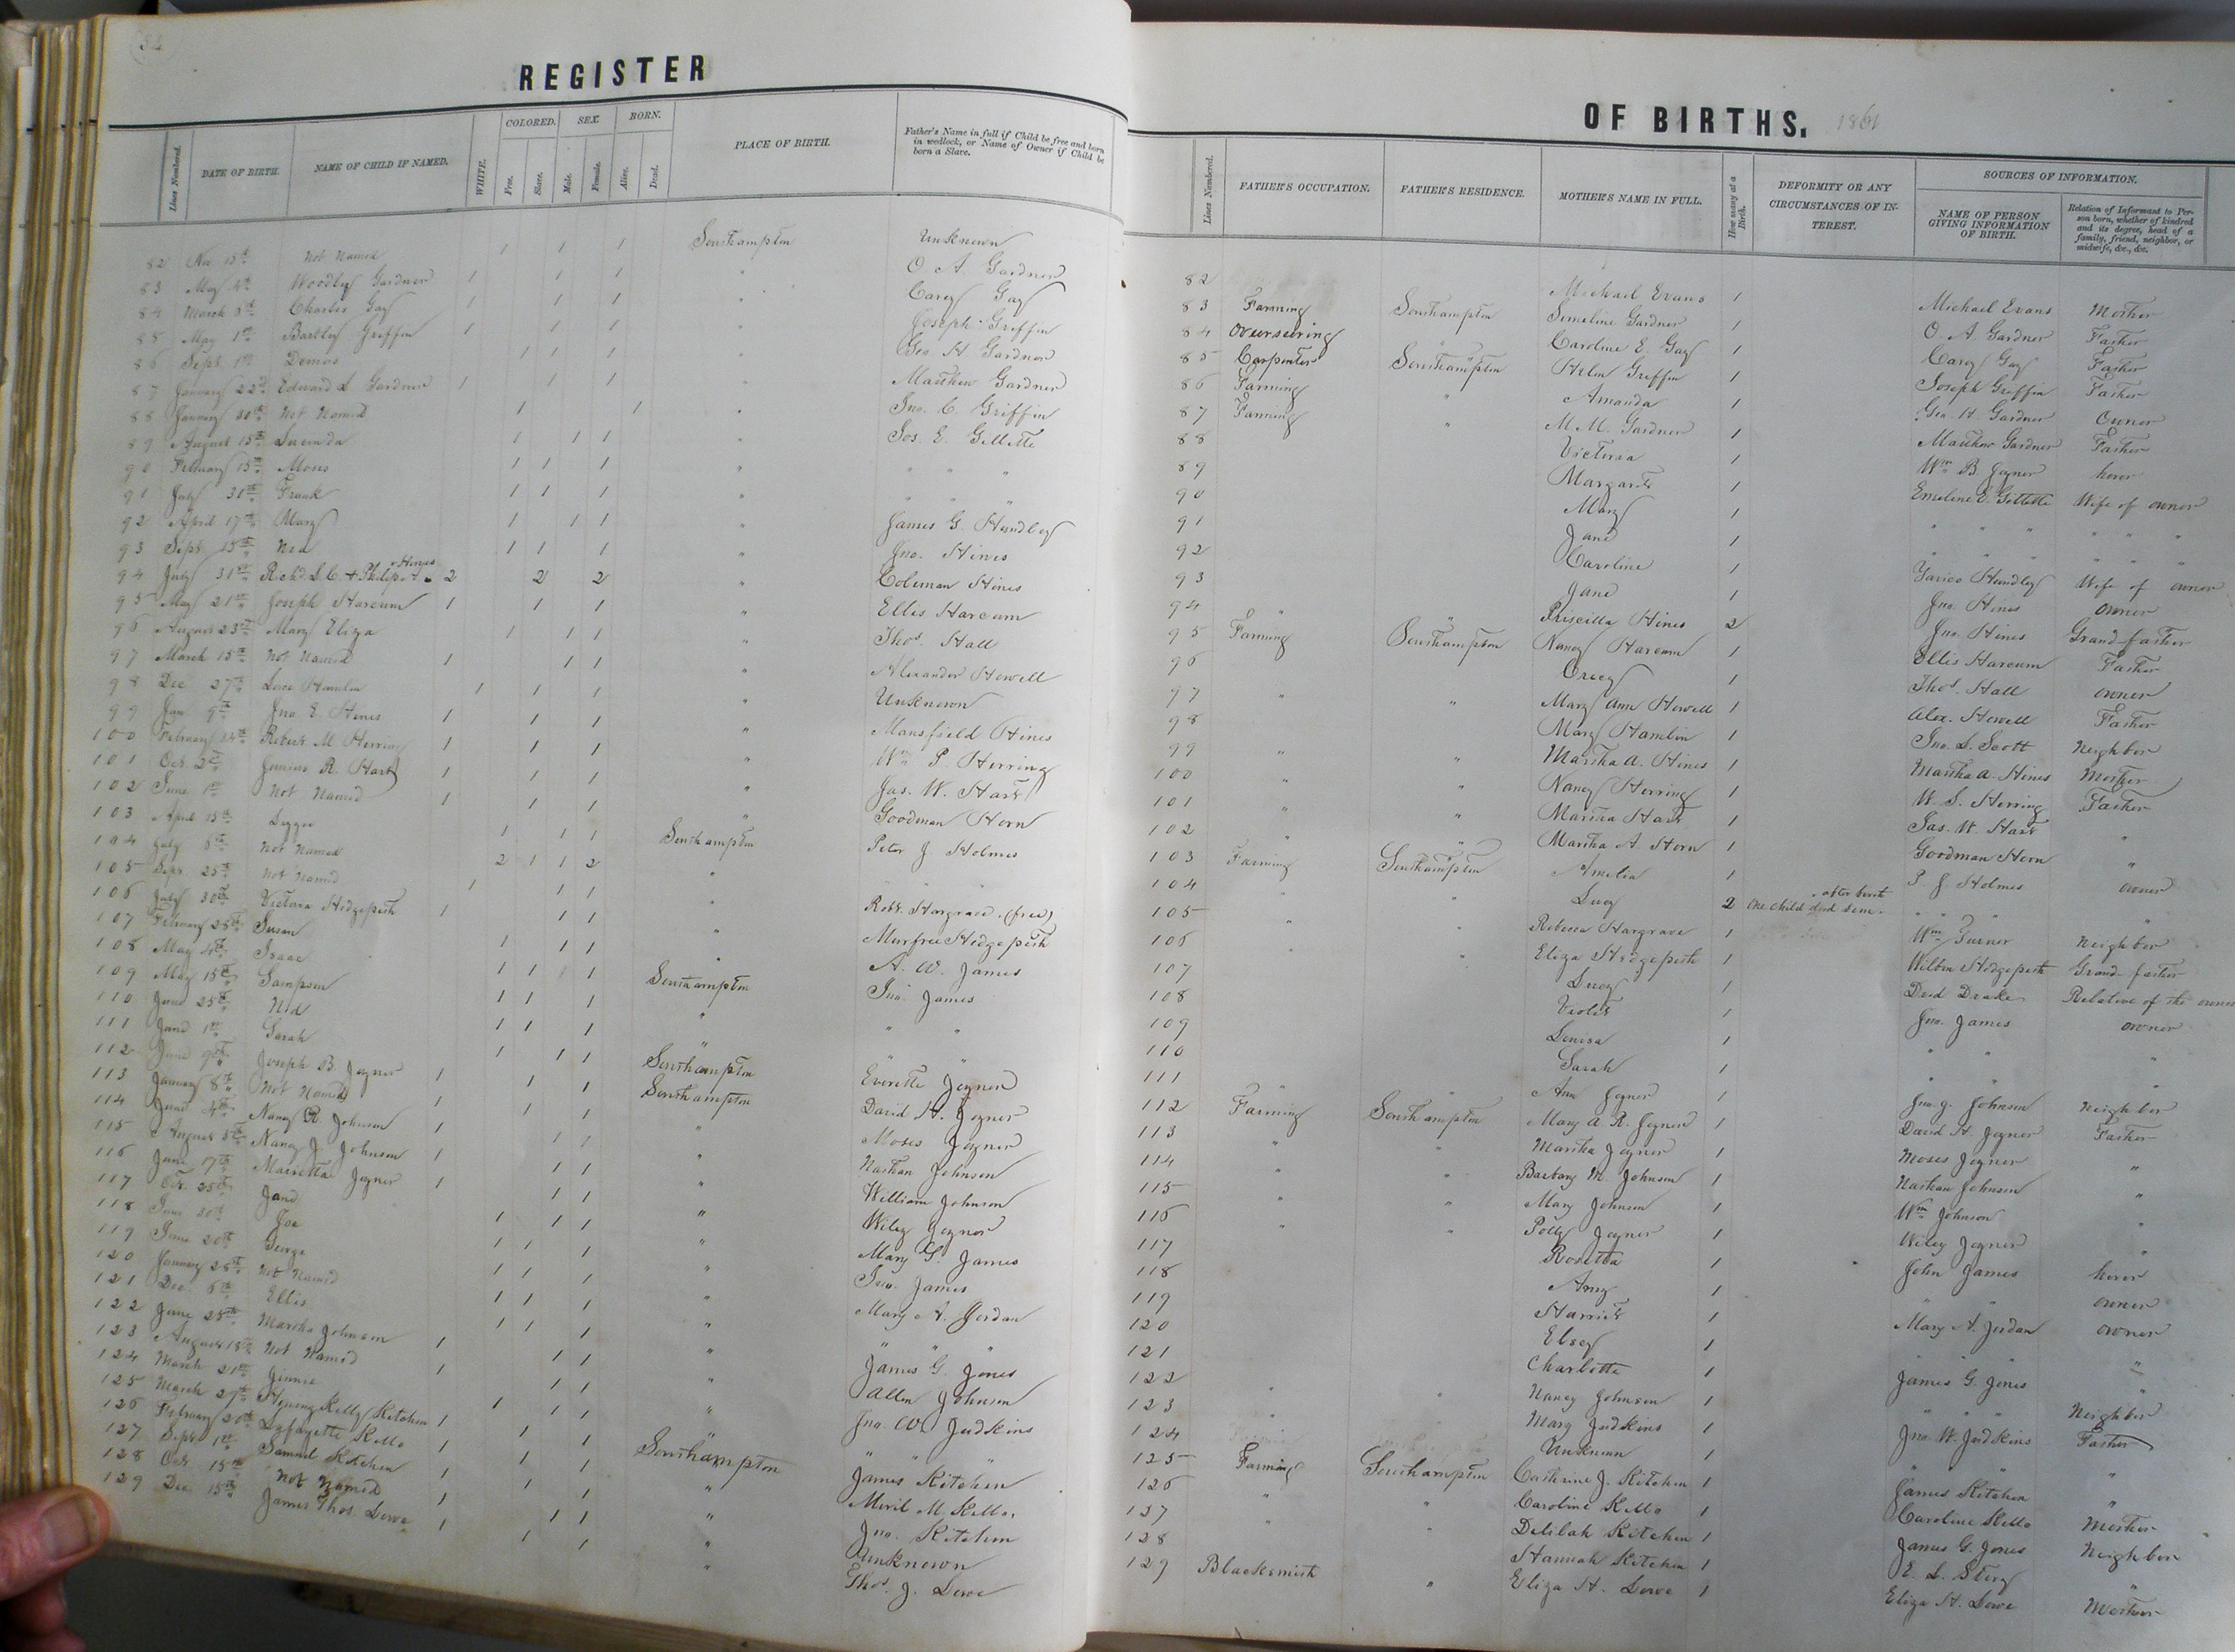 REGISTER
COLORED. SEX. BORN.
Lines Numbered. DATE OF BIRTH. NAME OF CHILD IF NAMED. WHITE. Free. Slave. Male. Female. Alive. Dead. PLACE OF BIRTH. Father's Name in full if Child be free and born in wedlock, or Name of Owner if Child be born a Slave.
82 Not Named 1 1 1 Southampton Unknown
83 May 4th Woodley Gardner 1 1 1 " O. A. Gardner
84 March Charles Gay 1 1 1 " Carey Gay
85 May 1st Griffin 1 1 1 " Joseph Griffin
86 Sept. 1st 1 1 1 " Geo. H. Gardner
87 January 22nd Edward L. Gardner 1 1 1 " Matthew Gardner
88 January 30th Not Named 1 1 " Jno. C. Griffin
89 August 15th Lucinda 1 1 1 " Jos. E. Gillette
90 February 15th Moses 1 1 1 " " " "
91 July 31st Frank 1 1 1 " " " "
92 April 17th Mary 1 1 1 " James G. Hundley
93 Sept. 15th Ned 1 1 1 " Jno. Hines
94 July 31st Richd. L. C. + Philip Hines 2 2 2 " Coleman Hines
95 May 21st Joseph Harcum 1 1 1 " Ellis Harcum
96 August 23rd Mary Eliza 1 1 1 " Thos. Hall
97 March 15th Not Named 1 1 1 " Alexander Howell
98 Dec 27th Hamlin 1 1 1 " Unknown
99 Jan 9th Jno. E. Hines 1 1 1 " Mansfield Hines
100 February 24th Robert M. Herring 1 1 1 " Wm. P. Herring
101 Oct. 2nd Junius R. Hart 1 1 1 " Jas. W. Hart
102 June 1st Not Named 1 1 1 " Goodman Horn
103 April 15th 1 1 1 Southampton Peter J. Holmes
104 July Not Named 2 1 1 2 "
105 Sept. 25th Not Named 1 1 1 " Robt. Hargrave. (free)
106 July 30th Victora Hedgepeth 1 1 1 " Murfree Hedgepeth
107 February 25th Susan 1 1 1 " A. W. James
108 May 4th Isaac 1 1 1 Southampton Jno. James
109 May 15th Sampson 1 1 1 " " "
110 June 25th Ned 1 1 1 "
111 June 1st Sarah 1 1 1 Southampton Everette Joyner
112 June 9th Joseph B. Joyner 1 1 1 Southampton David H. Joyner
113 January 8th Not Named 1 1 1 " Moses Joyner
114 June 4th Nancy R. Johnson 1 1 1 " Nathan Johnson
115 August 5th Nancy J. Johnson 1 1 1 " William Johnson
116 June 17th Marietta Joyner 1 1 1 " Wiley Joyner
117 Oct. 25th Jane 1 1 1 " Mary G. James
118 June 30th Joe 1 1 1 " Jno. James
119 June 20th George 1 1 1 " Mary A. Jordan
120 January 25th Not Named 1 1 1 " " "
121 Dec. 6th Ellis 1 1 1 " James G. Jones
122 June 25th Martha Johnson 1 1 1 " Allen Johnson
123 August 15th Not Named 1 1 1 " Jno. W. Judkins
124 March 21st Jinnie 1 1 1 " " "
125 March 27th Kelly Kitchen 1 1 1 Southampton James Kitchen
126 February 20th Lafayette Kello 1 1 1 " Miril M. Kello.
127 Sept. 1st Samuel Kitchen 1 1 1 " Jno. Kitchen
128 Oct. 15th Not Named 1 1 1 " Unknown
129 Dec. 15th James Thos. Lowe 1 1 1 " Thos. J. Lowe
OF BIRTHS. 1861
Lines Numbered. FATHER'S OCCUPATION. FATHER'S RESIDENCE. MOTHER'S NAME IN FULL. How many at a Birth. DEFORMITY OR ANY CIRCUMSTANCES OF INTEREST. SOURCES OF INFORMATION. NAME OF PERSON GIVING INFORMATION OF BIRTH. Relation of Informant to Person born, whether of kindred and its degree, head of a family, friend, neighbor, or midwife, &c., &c.
82 Michael Evans 1 Michael Evans Mother
83 Farming Southampton Gardner 1 O. A. Gardner Father
84 Overseering " Caroline E. Gay 1 Carey Gay Father
85 Carpenter Southampton Griffin 1 Joseph Griffin Father
86 Farming " Amanda 1 Geo. H. Gardner Owner
87 Farming " M. M. Gardner 1 Matthew Gardner Father
88 Victoria 1 Wm. B. Joyner hirer
89 Margaret 1 Emeline E. Gillette Wife of owner
90 Mary 1 " " " " " "
91 Jane 1 " " " " " "
92 Caroline 1 Hundley Wife of owner
93 Jane 1 Jno. Hines Owner
94 " " Priscilla Hines 2 Jno. Hines Grand father
95 Farming Southampton Nancy Harcum 1 Ellis Harcum Father
96 Creecy 1 Thos. Hall owner
97 " " Mary Ann Howell 1 Alex. Howell Father
98 Mary Hamlin 1 Jno. S. Scott Neighbor
99 " " Martha A. Hines 1 Martha A. Hines Mother
100 " " Nancy Herring 1 W. S. Herring Father
101 " " Martha Hart 1 Jas. W. Hart "
102 " " Martha A. Horn 1 Goodman Horn "
103 Farming Southampton Amelia 1 P. J. Holmes owner
104 " " Lucy 2 One child died soon after birth " " "
105 " " Rebecca Hargrave 1 Wm. Turner Neighbor
106 " " Eliza Hedgepeth 1 Hedgepeth Grand father
107 Lucy 1 Drake Relative of the owner
108 Violet 1 Jno. James owner
109 Louisa 1 " " "
110 Sarah 1 " " "
111 " " Ann Joyner 1 Johnson Neighbor
112 Farming Southampton Mary A. R. Joyner 1 David H. Joyner Father
113 " " Martha Joyner 1 Moses Joyner "
114 " " Barbary M. Johnson 1 Nathan Johnson "
115 " " Mary Johnson 1 Wm. Johnson "
116 " " Polly Joyner 1 Wiley Joyner "
117 Rosetta 1 John James hirer
118 Amy 1 " " owner
119 Harriet 1 Mary A. Jordan owner
120 Elsey 1 " " "
121 Charlotte 1 James G. Jones "
122 " " Nancy Johnson 1 " " Neighbor
123 " " Mary Judkins 1 Jno. W. Judkins Father
124 Unknown 1 " " "
125 Farming Southampton Cathrine J. Kitchen 1 James Kitchen "
126 " " Caroline Kello 1 Caroline Kello Mother
127 " " Delilah Kitchen 1 James G. Jones Neighbor
128 Hannah Kitchen 1 E. L. Story "
129 Blacksmith " Eliza H. Lowe 1 Eliza H. Lowe Mother